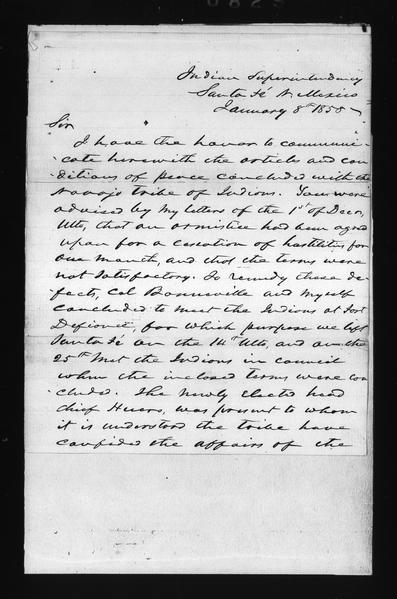 Indian Superintendency
Santa Fé N. Mexico
January 8th 1859
Sir
I have the honor to communi-
-cate herewith the articles and con-
-ditions of peace concluded with the
Navajo tribe of Indians. You were
advised by my letters of the 1st of Decr.
Ulto, that an armistice had been agreed
upon for a cessation of hostilities for
one month, and that the terms were
not satisfactory. To remedy these de-
-fects, Col Bonneville and myself
concluded to meet the Indians at Fort
Defiance, for which purpose we left
Santa Fé on the 14th Ulto, and on the
25th met the Indians in council
when the inclosed terms were con-
-cluded. The newly elected head
chief Huero, was present to whom
it is understood the tribe have
confided the affairs of the